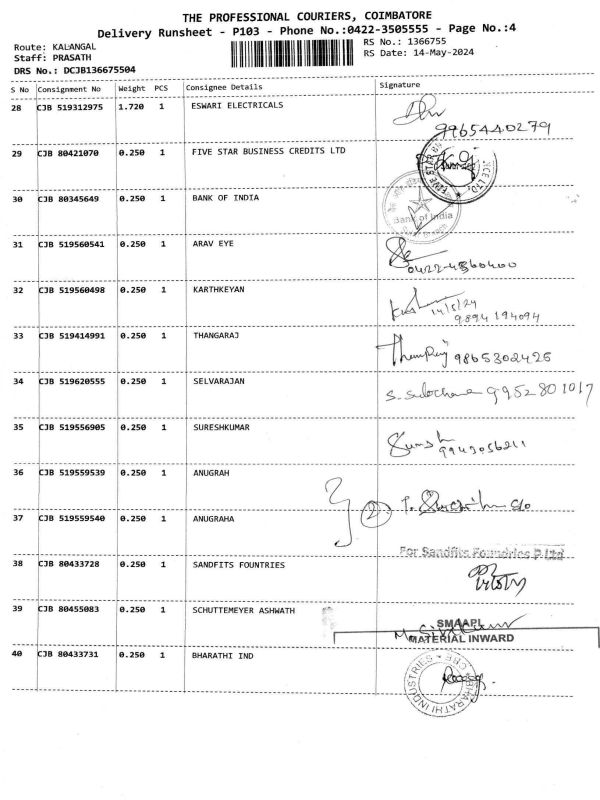 THE PROFESSIONAL COURIERS, COIMBATORE
Delivery Runsheet - P103 - Phone No.:0422-3505555 - Page No.:4
Route: KALANGAL RS No.: 1366755
Staff: PRASATH RS Date: 14-May-2024
DRS No.: DCJB136675504
S No Consignment No Weight PCS Consignee Details Signature
28 CJB 519312975 1.720 1 ESWARI ELECTRICALS
9965440279
29 CJB 80421070 0.250 1 FIVE STAR BUSINESS CREDITS LTD
30 CJB 80345649 0.250 1 BANK OF INDIA
Bank of India
31 CJB 519560541 0.250 1 ARAV EYE
0422-4360400
32 CJB 519560498 0.250 1 KARTHKEYAN
14/5/24
9894194094
33 CJB 519414991 0.250 1 THANGARAJ
9865302425
34 CJB 519620555 0.250 1 SELVARAJAN
9952801017
35 CJB 519556905 0.250 1 SURESHKUMAR
36 CJB 519559539 0.250 1 ANUGRAH
2
37 CJB 519559540 0.250 1 ANUGRAHA
For Sandfits Foundries P Ltd
38 CJB 80433728 0.250 1 SANDFITS FOUNTRIES
39 CJB 80455083 0.250 1 SCHUTTEMEYER ASHWATH
SMAAPL
MATERIAL INWARD
40 CJB 80433731 0.250 1 BHARATHI IND
BHARATHI INDUSTRIES * CBE *